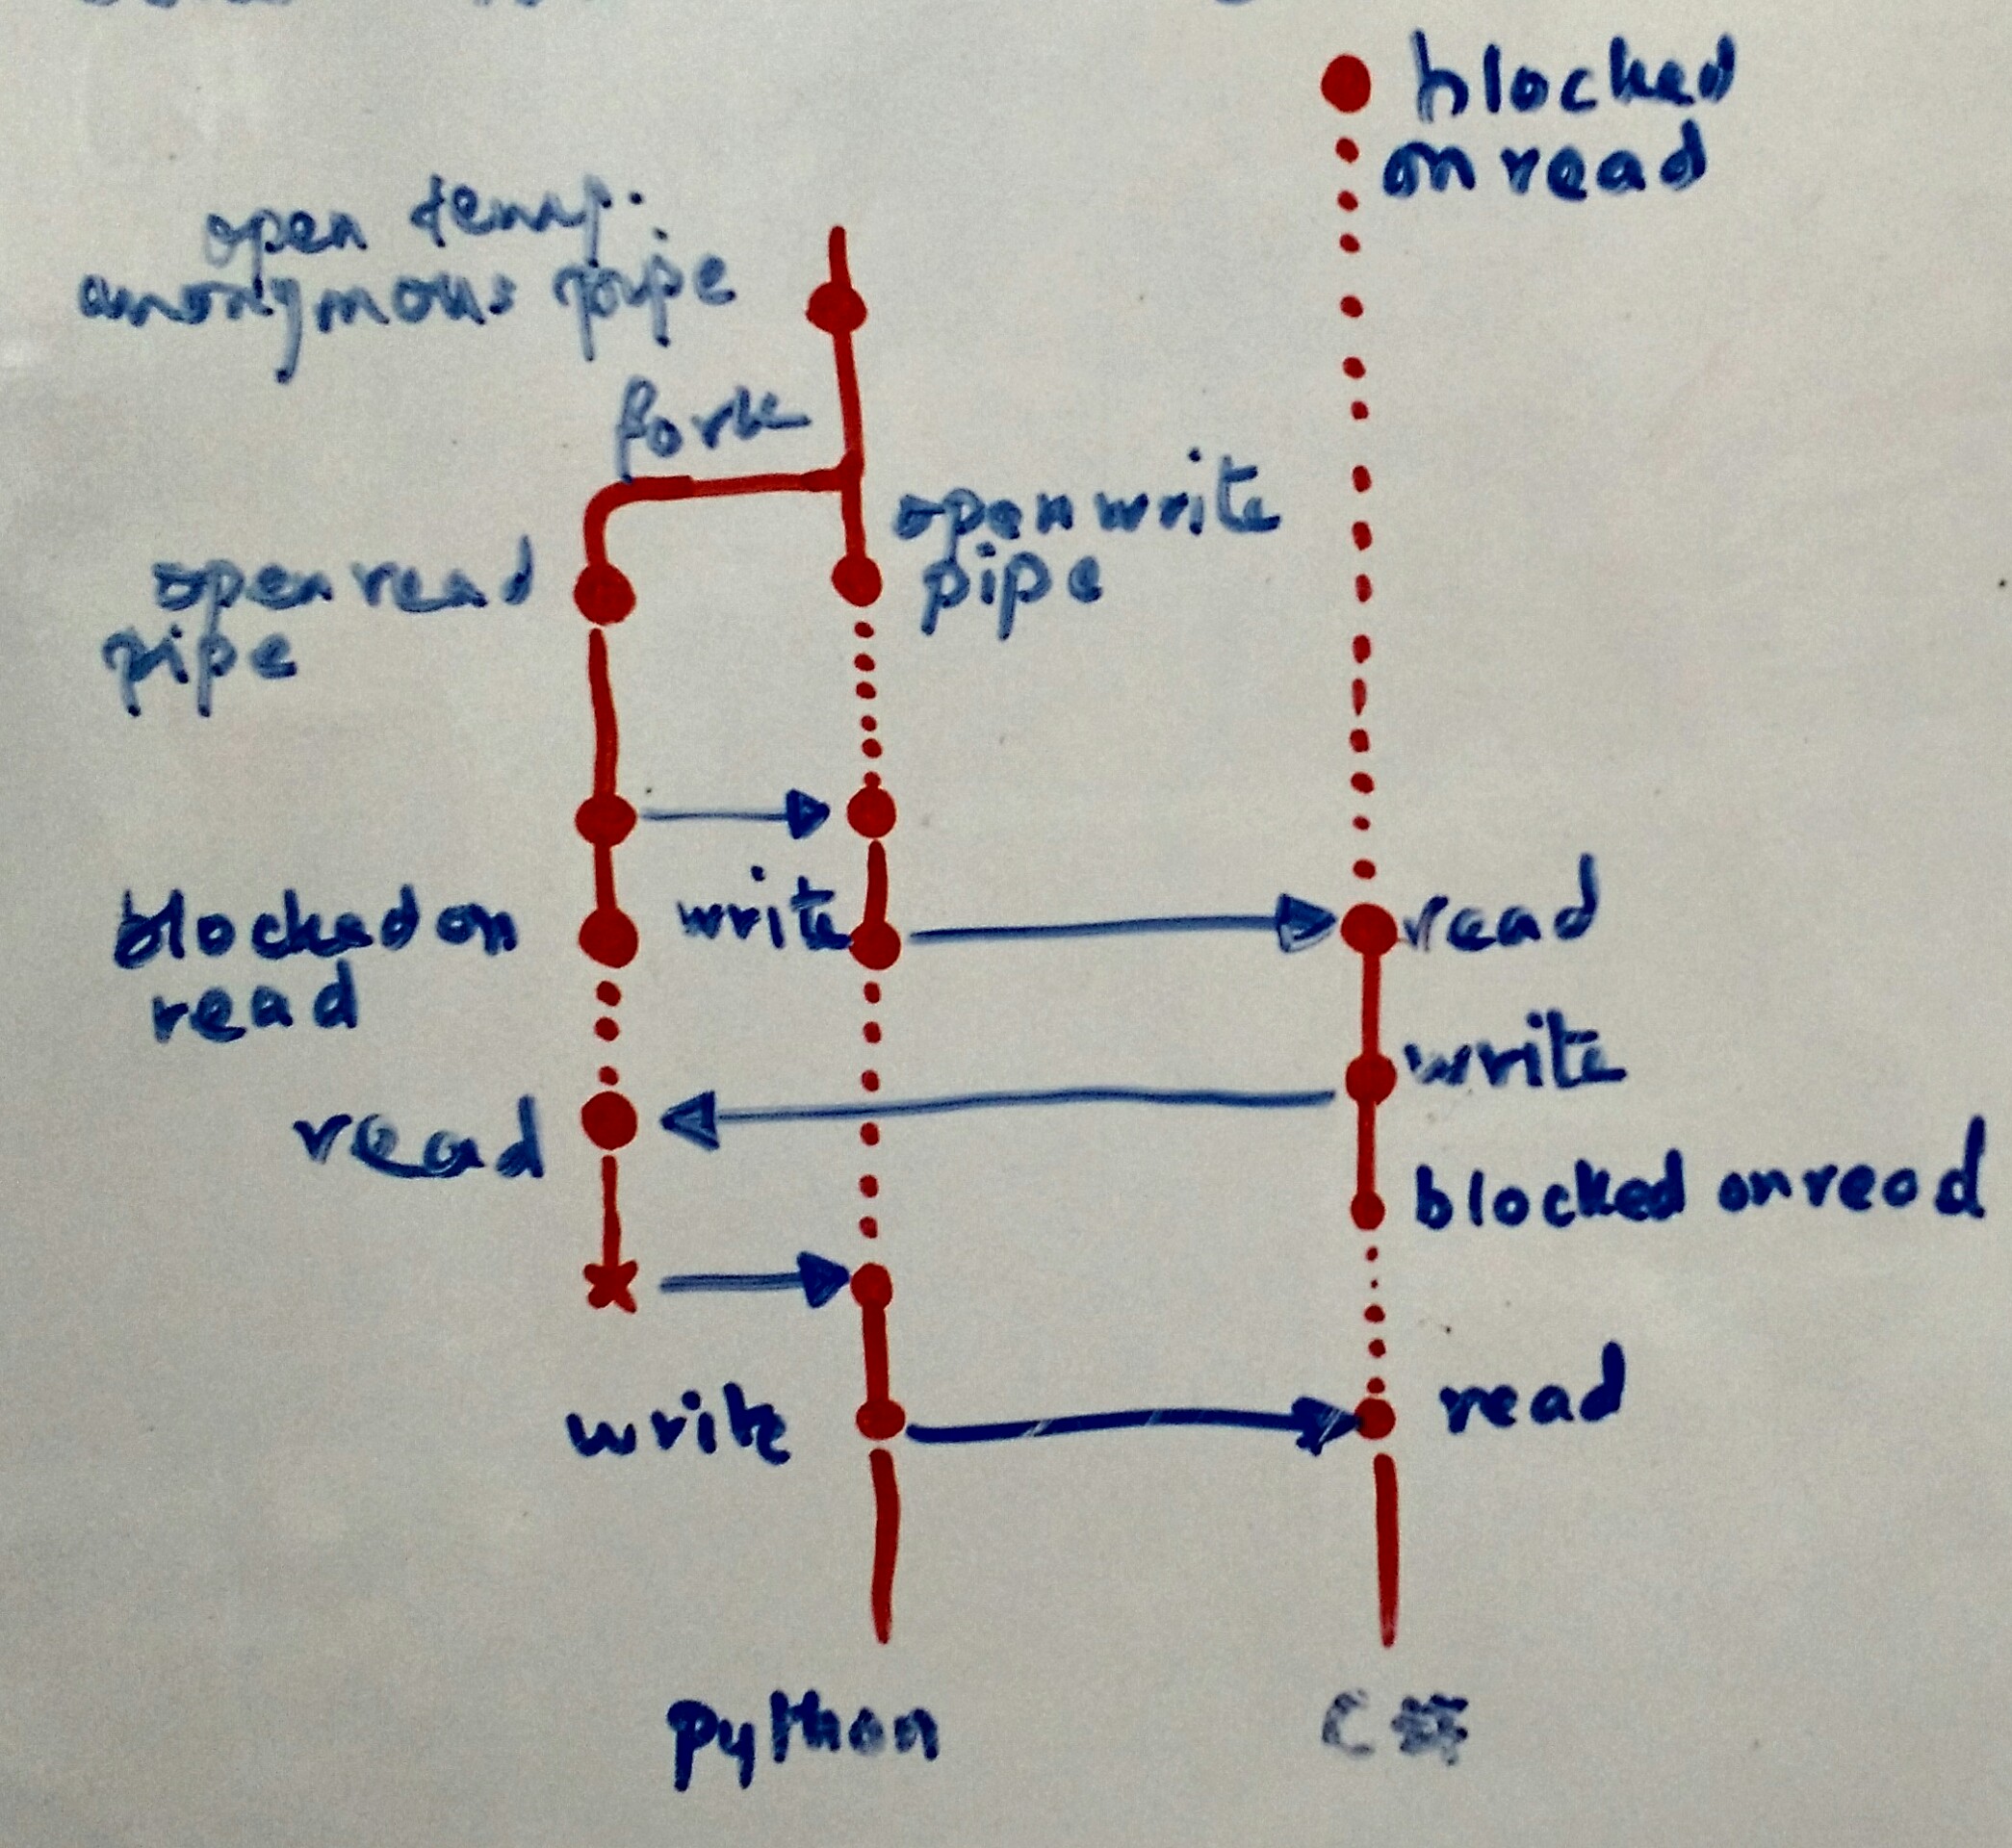 blocked
on read
open temp.
anonymous pipe
fork
open write
pipe
open read
pipe
blocked on
read
write
read
write
read
blocked on read
write
read
Python
C